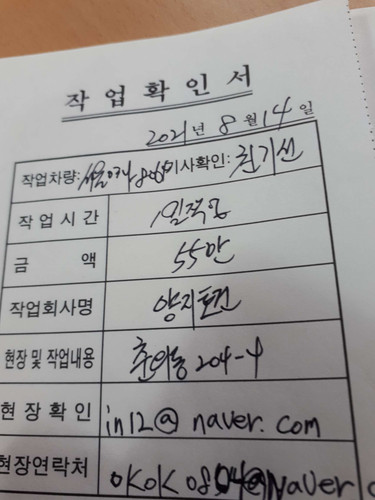 작업확인서
2021년 8월 14일
작업차량: 서울 기사확인: 최기선
작업시간 1일작업
금액 55만
작업회사명 양지토건
현장 및 작업내용 춘의동 204-4
현장확인 in12@naver.com
현장연락처